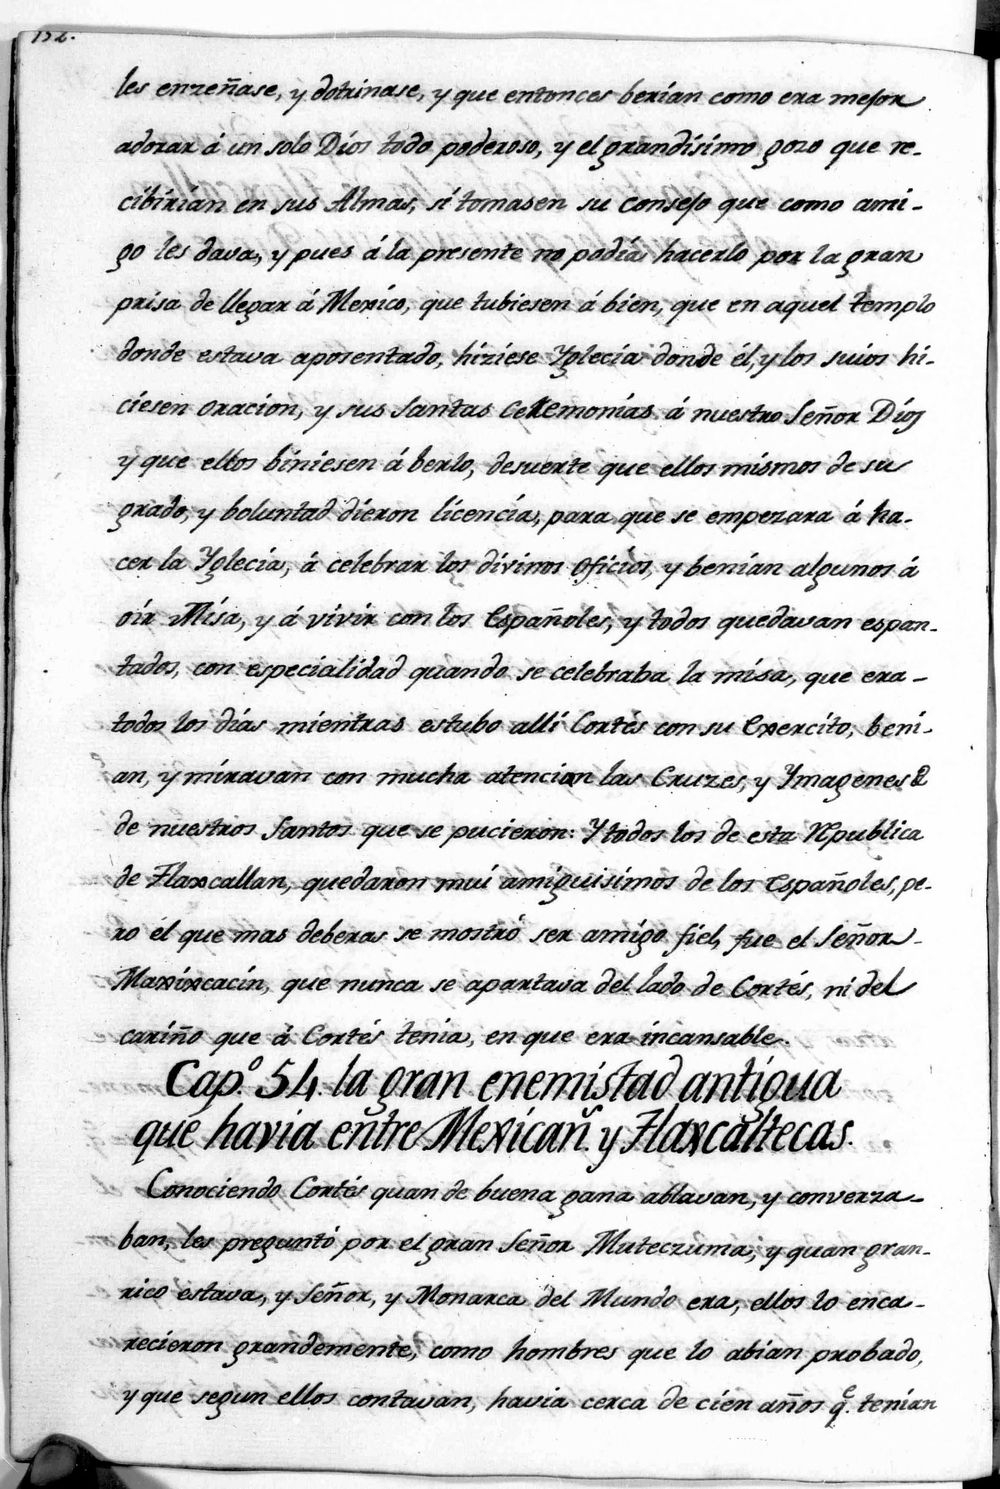 152.
les enzeñase, y dotrinase, y que entonces berian como era mejor
adorar á un solo Dios todo poderoso, y el grandisimo gozo que re-
cibirian en sus Almas, si tomasen su consejo que como ami-
go les dava, y pues á la presente no podía hacerlo por la gran
prisa de llegar á Mexico, que tubiesen á bien, que en aquel templo
donde estava aposentado, hiziese Yglecia donde él, y los suios hi-
ciesen oracion, y sus santas ceremonias á nuestro Señor Dios
y que ellos biniesen á berlo, desuerte que ellos mismos de su
grado, y boluntad dieron licencia, para que se empezara á ha-
cer la Yglecia, á celebrar los divinos oficios, y benian algunos á
oír Misa, y á vivir con los Españoles, y todos quedavan espan-
tados, con especialidad quando se celebraba la misa, que era-
todos los días mientras estubo allí Cortés con su Exercito, beni-
an, y miravan con mucha atencion las Cruzes, y Ymagenes
de nuestros Santos que se pucieron: Y todos los de esta Rpublica
de Tlaxcallan, quedaron mui amiguisimos de los Españoles, pe-
ro él que mas deberas se mostró ser amigo fiel, fue el Señor
Maxixcacin, que nunca se apartava del lado de Cortés, ni del
cariño que á Cortés tenia, en que era incansable.
Cap.º 54. la gran enemistad antigua
que havia entre Mexican.s y Tlaxcaltecas.
Conociendo Cortés quan de buena gana ablavan, y converza-
ban, les preguntó por el gran Señor Muteczuma; y quan gran-
rico estava, y Señor, y Monarca del Mundo era, ellos lo enca-
recieron grandemente, como hombres que lo abian probado,
y que segun ellos contavan, havia cerca de cien años q.e tenian